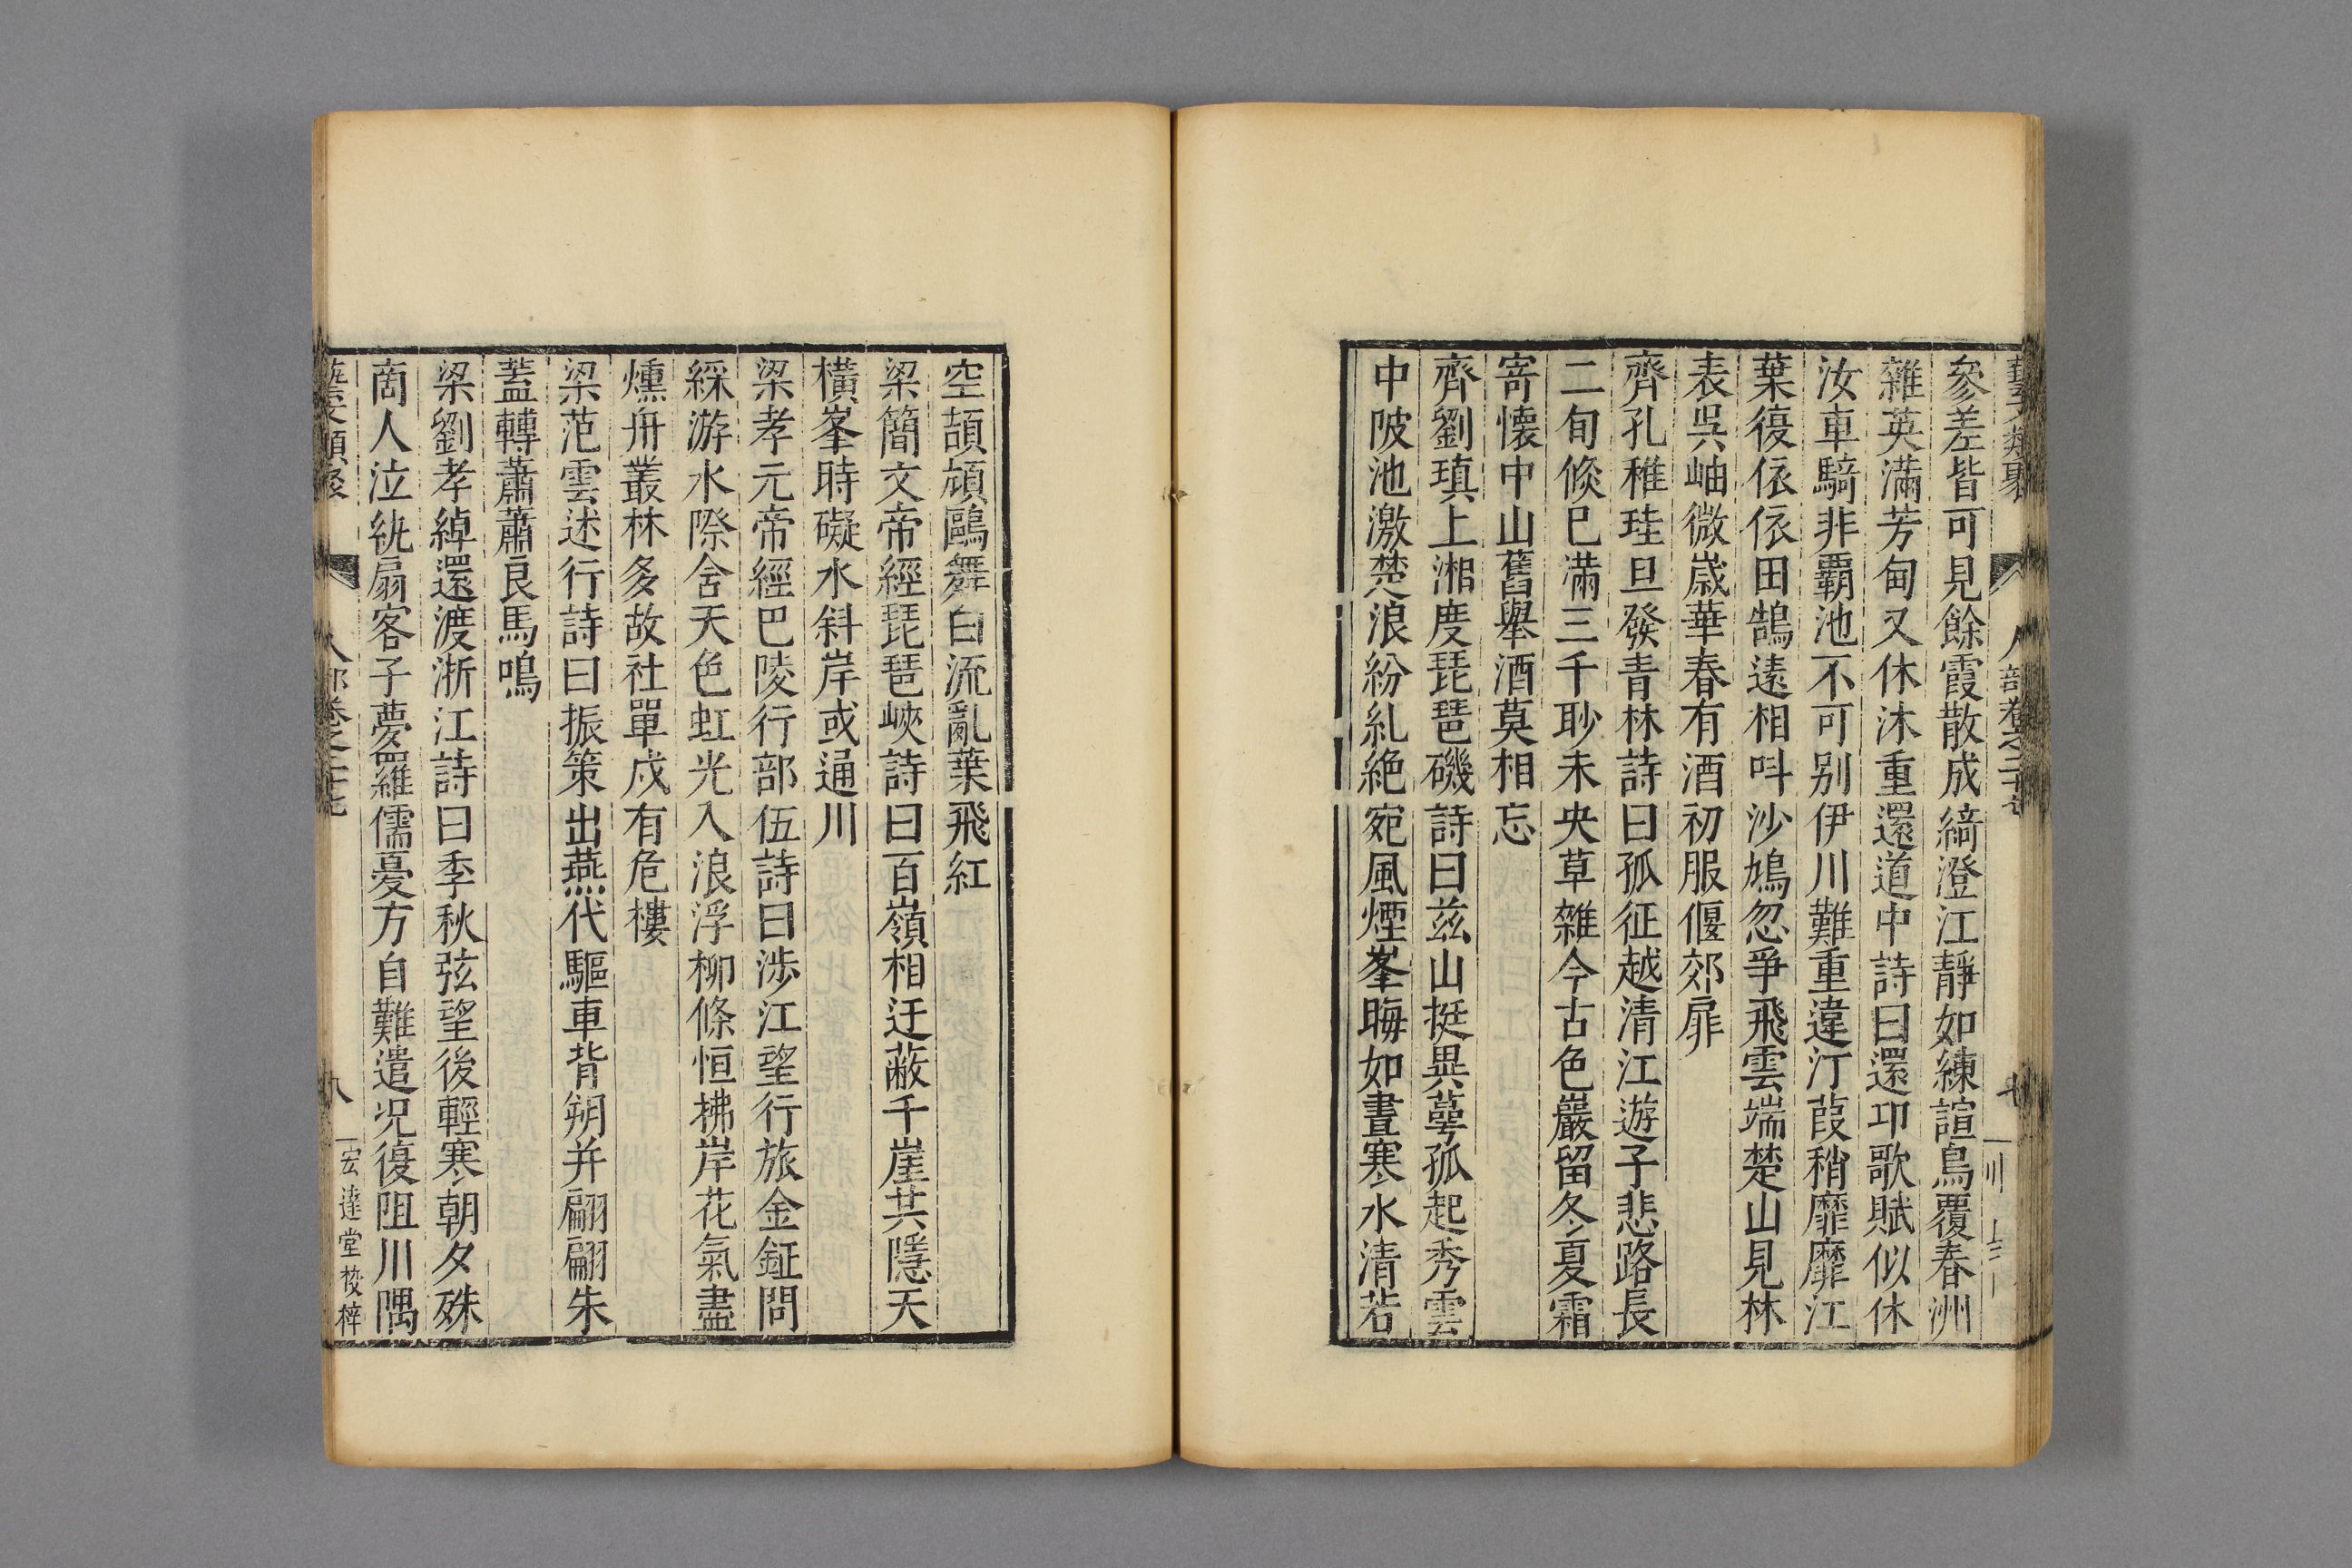 藝文類聚 人部卷之二十七 七
參差皆可見餘霞散成綺澄江靜如練諠鳥覆春洲
雜英滿芳甸又休沐重還道中詩曰還卭歌賦似休
汝車騎非覇池不可别伊川難重違汀葭稍靡靡江
葉復依依田鵠遠相呌沙鴇忽爭飛雲端楚山見林
表吳岫微歲華春有酒初服偃郊扉
齊孔稚珪旦發青林詩曰孤征越清江遊子悲路長
二旬倐巳滿三千眇未央草雜今古色巖留冬夏霜
寄懷中山舊舉酒莫相忘
齊劉瑱上湘度琵琶磯詩曰茲山挺異萼孤起秀雲
中陂池激楚浪紛糺絶宛風煙峯晦如晝寒水清若
空頡頏鷗舞白流亂葉飛紅
梁簡文帝經琵琶峽詩曰百嶺相迂蔽千崖共隱天
橫峯時礙水斜岸或通川
梁孝元帝經巴陵行部伍詩曰涉江望行旅金鉦問
綵游水際含天色虹光入浪浮柳條恒拂岸花氣盡
燻舟叢林多故社單戍有危樓
梁范雲述行詩曰振策出燕代驅車背朔并翩翩朱
蓋轉蕭蕭良馬鳴
梁劉孝綽還渡浙江詩曰季秋弦望後輕寒朝夕殊
商人泣紈扇客子夢羅襦憂方自難遣况復阻川隅
藝文類聚 人部卷之二十七 八 宏達堂校梓